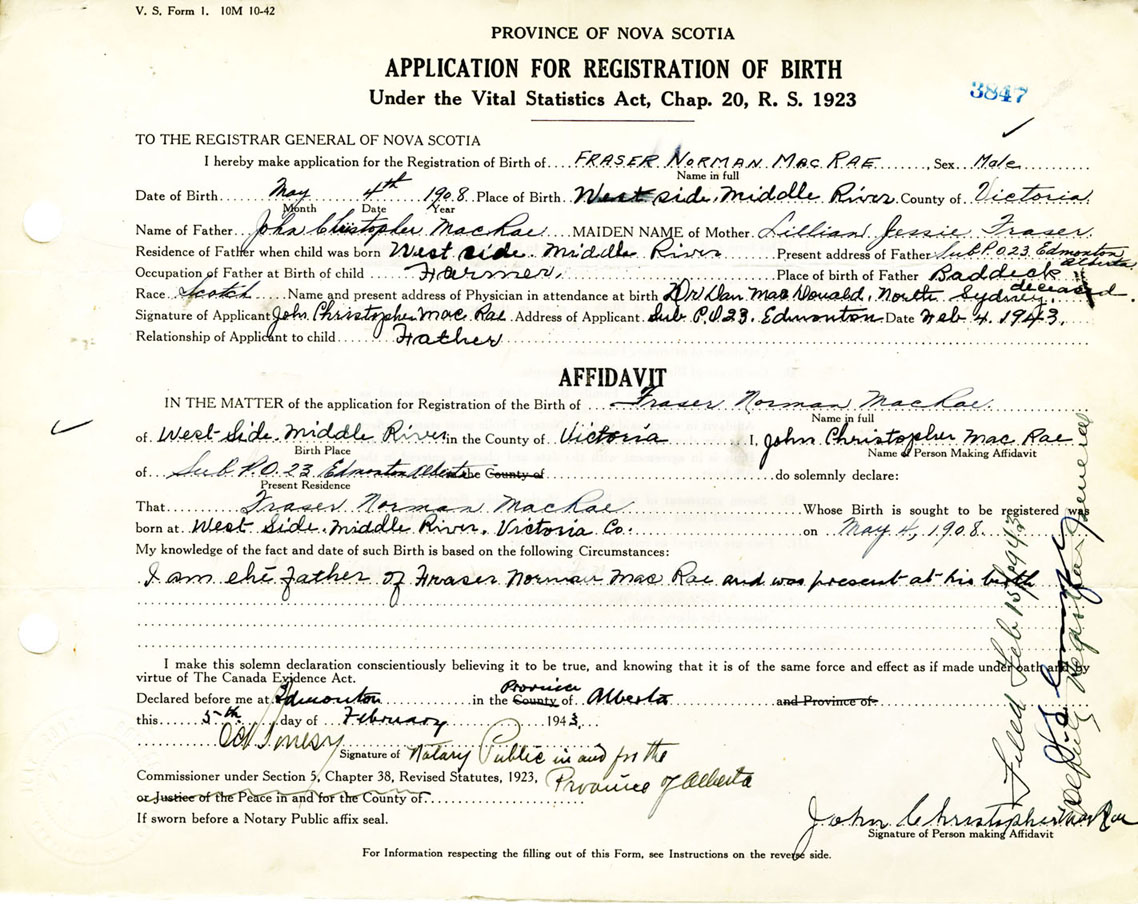 V. S. Form 1. 10M 10-42
PROVINCE OF NOVA SCOTIA
APPLICATION FOR REGISTRATION OF BIRTH
Under the Vital Statistics Act, Chap. 20, R. S. 1923
3847
TO THE REGISTRAR GENERAL OF NOVA SCOTIA
I hereby make application for the Registration of Birth of FRASER NORMAN MACRAE, Sex Male
Name in full
Date of Birth May 4th 1908 Place of Birth West side Middle River County of Victoria
Month Date Year
Name of Father John Christopher MacRae MAIDEN NAME of Mother Lillian Jessie Fraser
Residence of Father when child was born West side Middle River Present address of Father Sub P.O 23 Edmonton Alberta
Occupation of Father at Birth of child Farmer Place of birth of Father Baddeck
Race Scotch Name and present address of Physician in attendance at birth Dr Dan MacDonald, North Sydney. deceased.
Signature of Applicant John Christopher Mac Rae Address of Applicant Sub P.O 23. Edmonton Date Feb 4. 1943.
Relationship of Applicant to child Father
AFFIDAVIT
IN THE MATTER of the application for Registration of the Birth of Fraser Norman MacRae
Name in full
of West-Side Middle River in the County of Victoria I, John Christopher Mac Rae
Birth Place Name of Person Making Affidavit
of Sub P.O. 23 Edmonton Alberta the County of do solemnly declare:
Present Residence
That Fraser Norman MacRae Whose Birth is sought to be registered was
born at West Side. Middle River. Victoria Co. on May 4, 1908
My knowledge of the fact and date of such Birth is based on the following Circumstances:
I am the father of Fraser Norman Mac Rae and was present at his birth
I make this solemn declaration conscientiously believing it to be true, and knowing that it is of the same force and effect as if made under oath and by
virtue of The Canada Evidence Act.
Declared before me at Edmonton in the County Province of Alberta and Province of
this 5th day of February 1943.
Signature of Notary Public in and for the
Commissioner under Section 5, Chapter 38, Revised Statutes, 1923, Province of Alberta
or Justice of the Peace in and for the County of
If sworn before a Notary Public affix seal.
John Christopher Mac Rae
Signature of Person making Affidavit
For Information respecting the filling out of this Form, see Instructions on the reverse side.
Filed Feb 15, 1943
Deputy Registrar General